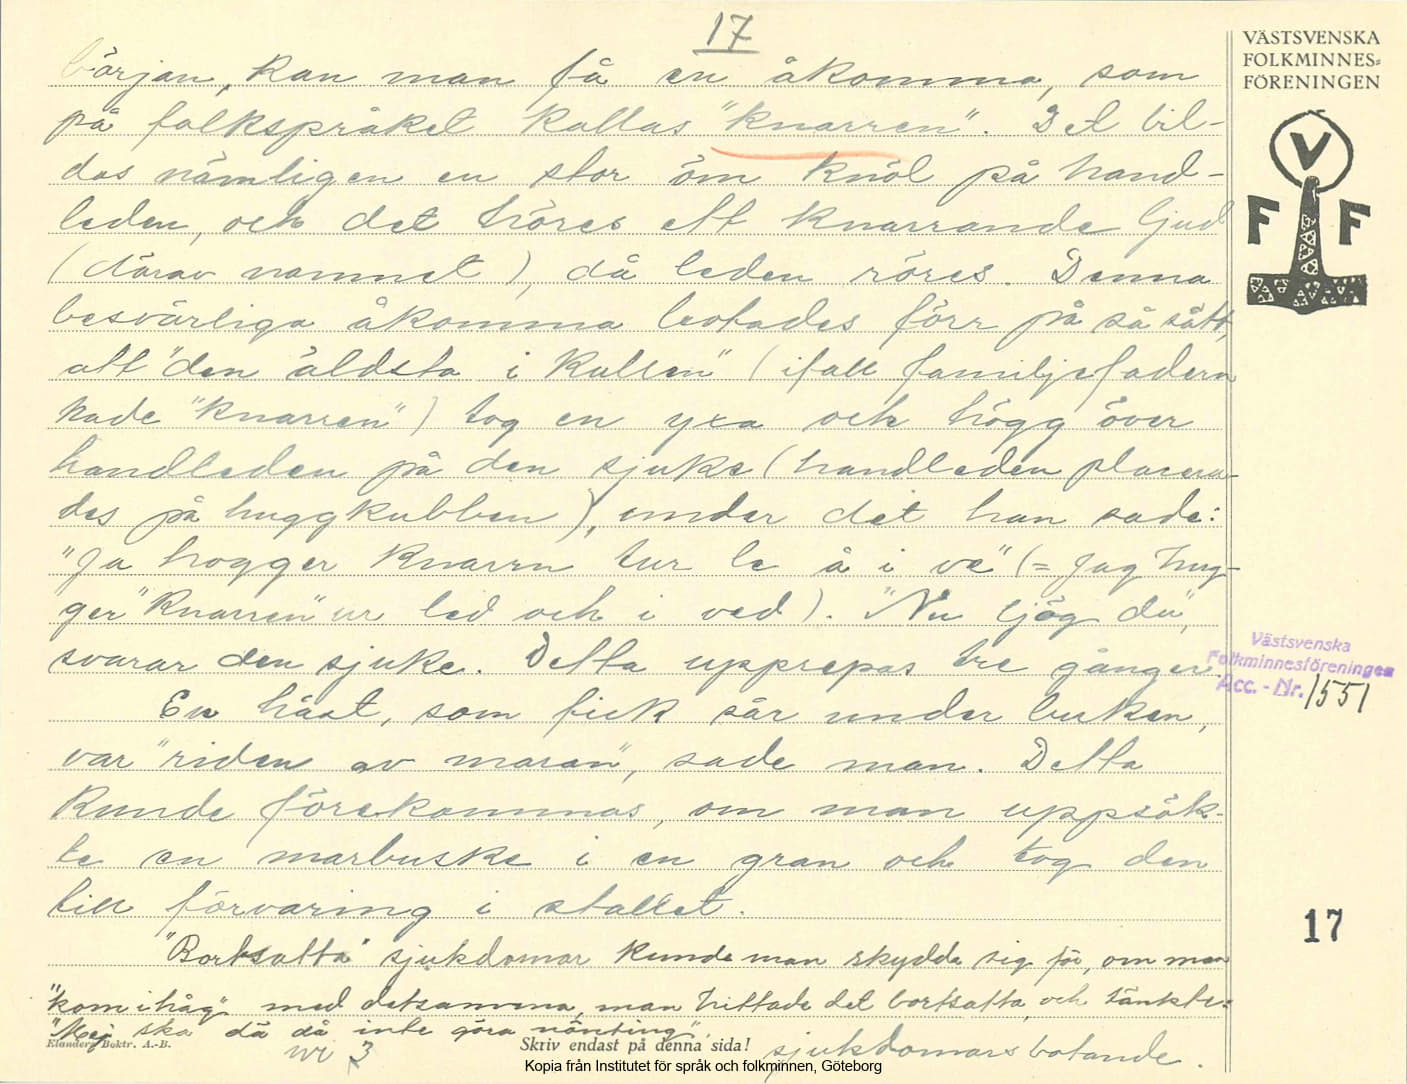 17
VÄSTSVENSKA
FOLKMINNES-
FÖRENINGEN
V
F F
början, kan man få en åkomma, som
på folkspråket kallas "knarren". Det bil-
das nämligen en stor öm knöl på hand-
leden, och det höres ett knarrande ljud
(därav namnet), då leden röres. Denna
besvärliga åkomma botades förr på så sätt,
att "den äldsta i kullen" (ifall familjefadern
hade "knarren") tog en yxa och högg över
handleden på den sjuke (handleden placera-
des på huggkubben), under det han sade:
"Ja hogger knarrn tur le å i ve" (= Jag hug-
ger "knarren" ur led och i ved). "Nu ljög du",
svarar den sjuke. Detta upprepas tre gånger.
Västsvenska
Folkminnesföreningen
Acc. - Nr. 1551
En häst, som fick sår under buken,
var "riden av maran", sade man. Detta
kunde förekommas, om man uppsök-
te en marbuske i en gran och tog den
till förvaring i stallet.
17
"Bortsatta" sjukdomar kunde man skydda sig för, om man
"kom ihåg" med detsamma, man hittade det bortsatta, och tänkte:
"Mej ska dä då inte göra nönting".
Elanders Boktr. A.-B.
Skriv endast på denna sida!
sjukdomars botande.
Kopia från Institutet för språk och folkminnen, Göteborg